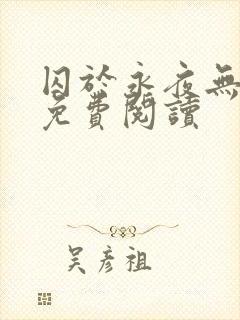 囚於永夜無
免費閱讀
吳彥祖